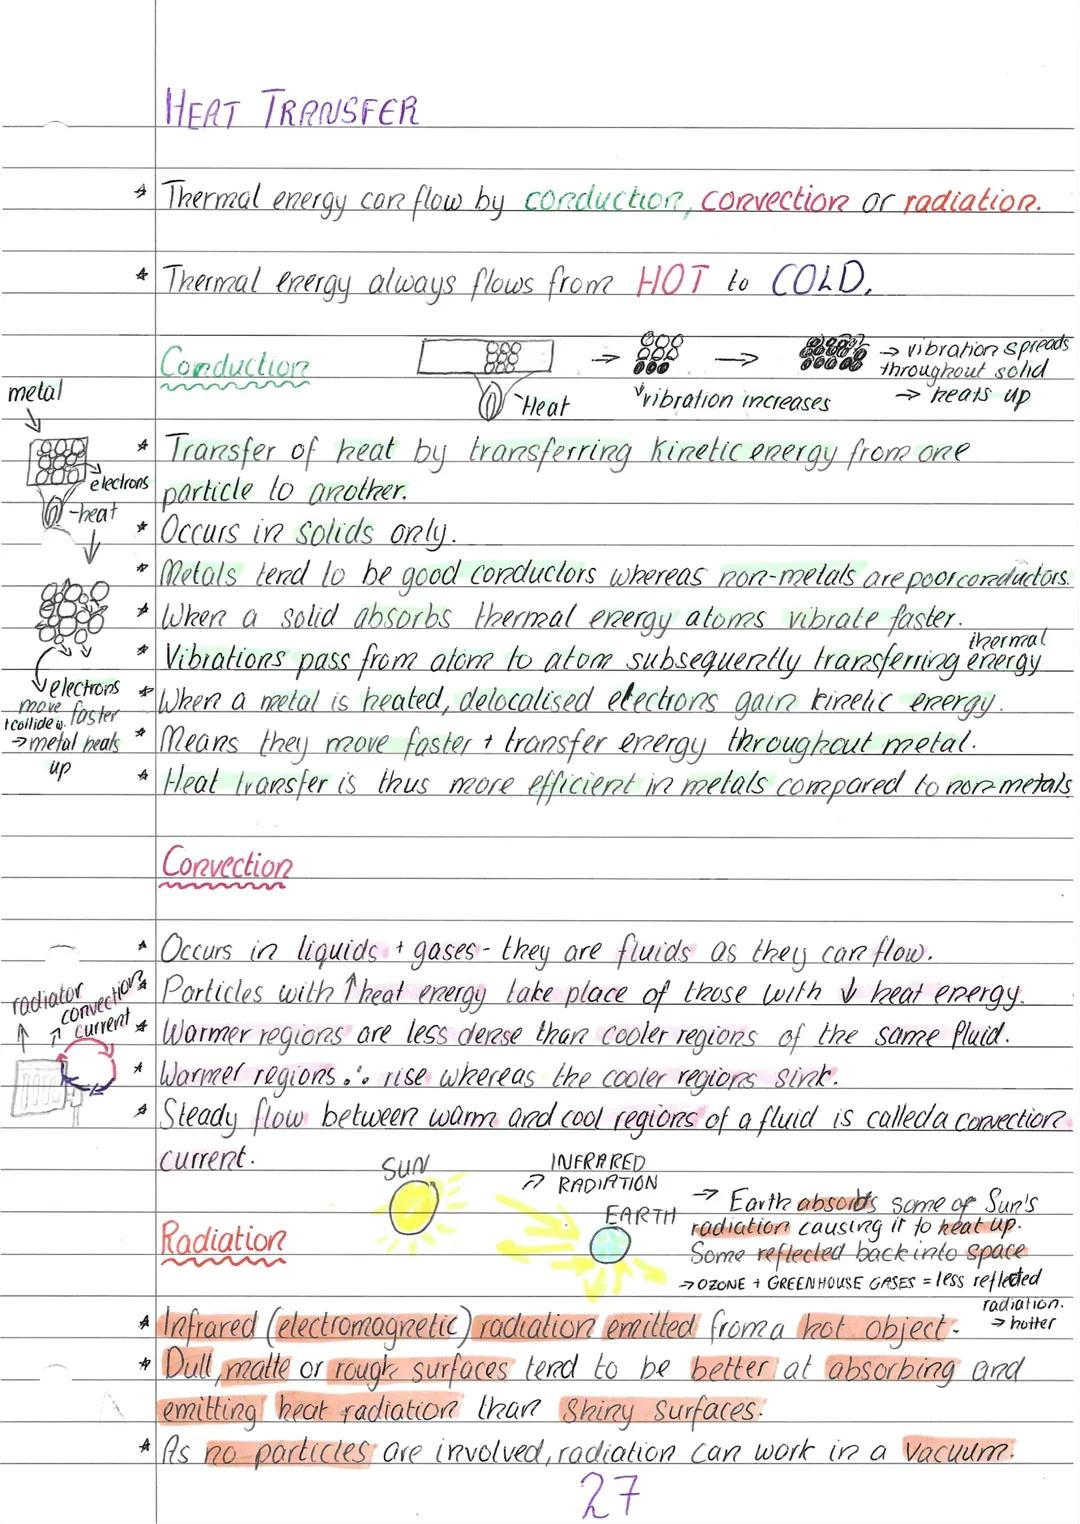 HEAT TRANSFER
* Thermal energy can flow by conduction, convection or radiation.
* Thermal energy always flows from HOT to COLD.
Conduction
Heat
→ → vibration increases
→ vibration spreads
throughout solid
→ heats up
metal
electrons
- heat
electrons
move faster
+ collide w.
→ metal heats
up
* Transfer of heat by transferring kinetic energy from one
particle to another.
* Occurs in solids only.
* Metals tend to be good conductors whereas non-metals are poor conductors.
* When a solid absorbs thermal energy atoms vibrate faster.
* Vibrations pass from atom to atom subsequently transferring thermal energy
* When a metal is heated, delocalised electrons gain kinetic energy.
* Means they move faster + transfer energy throughout metal.
* Heat transfer is thus more efficient in metals compared to non-metals
Convection
* Occurs in liquids + gases - they are fluids as they can flow.
* Particles with ↑ heat energy take place of those with ↓ heat energy.
* Warmer regions are less dense than cooler regions of the same fluid.
* Warmer regions ∴ rise whereas the cooler regions sink.
* Steady flow between warm and cool regions of a fluid is called a convection
current.
radiator
convection
current
SUN
INFRARED
RADIATION
EARTH
→ Earth absorbs some of Sun's
radiation causing it to heat up.
Some reflected back into space
→ OZONE + GREENHOUSE GASES = less reflected
radiation.
→ hotter
Radiation
* Infrared (electromagnetic) radiation emitted from a hot object.
* Dull, matte or rough surfaces tend to be better at absorbing and
emitting heat radiation than shiny surfaces.
* As no particles are involved, radiation can work in a vacuum.
27